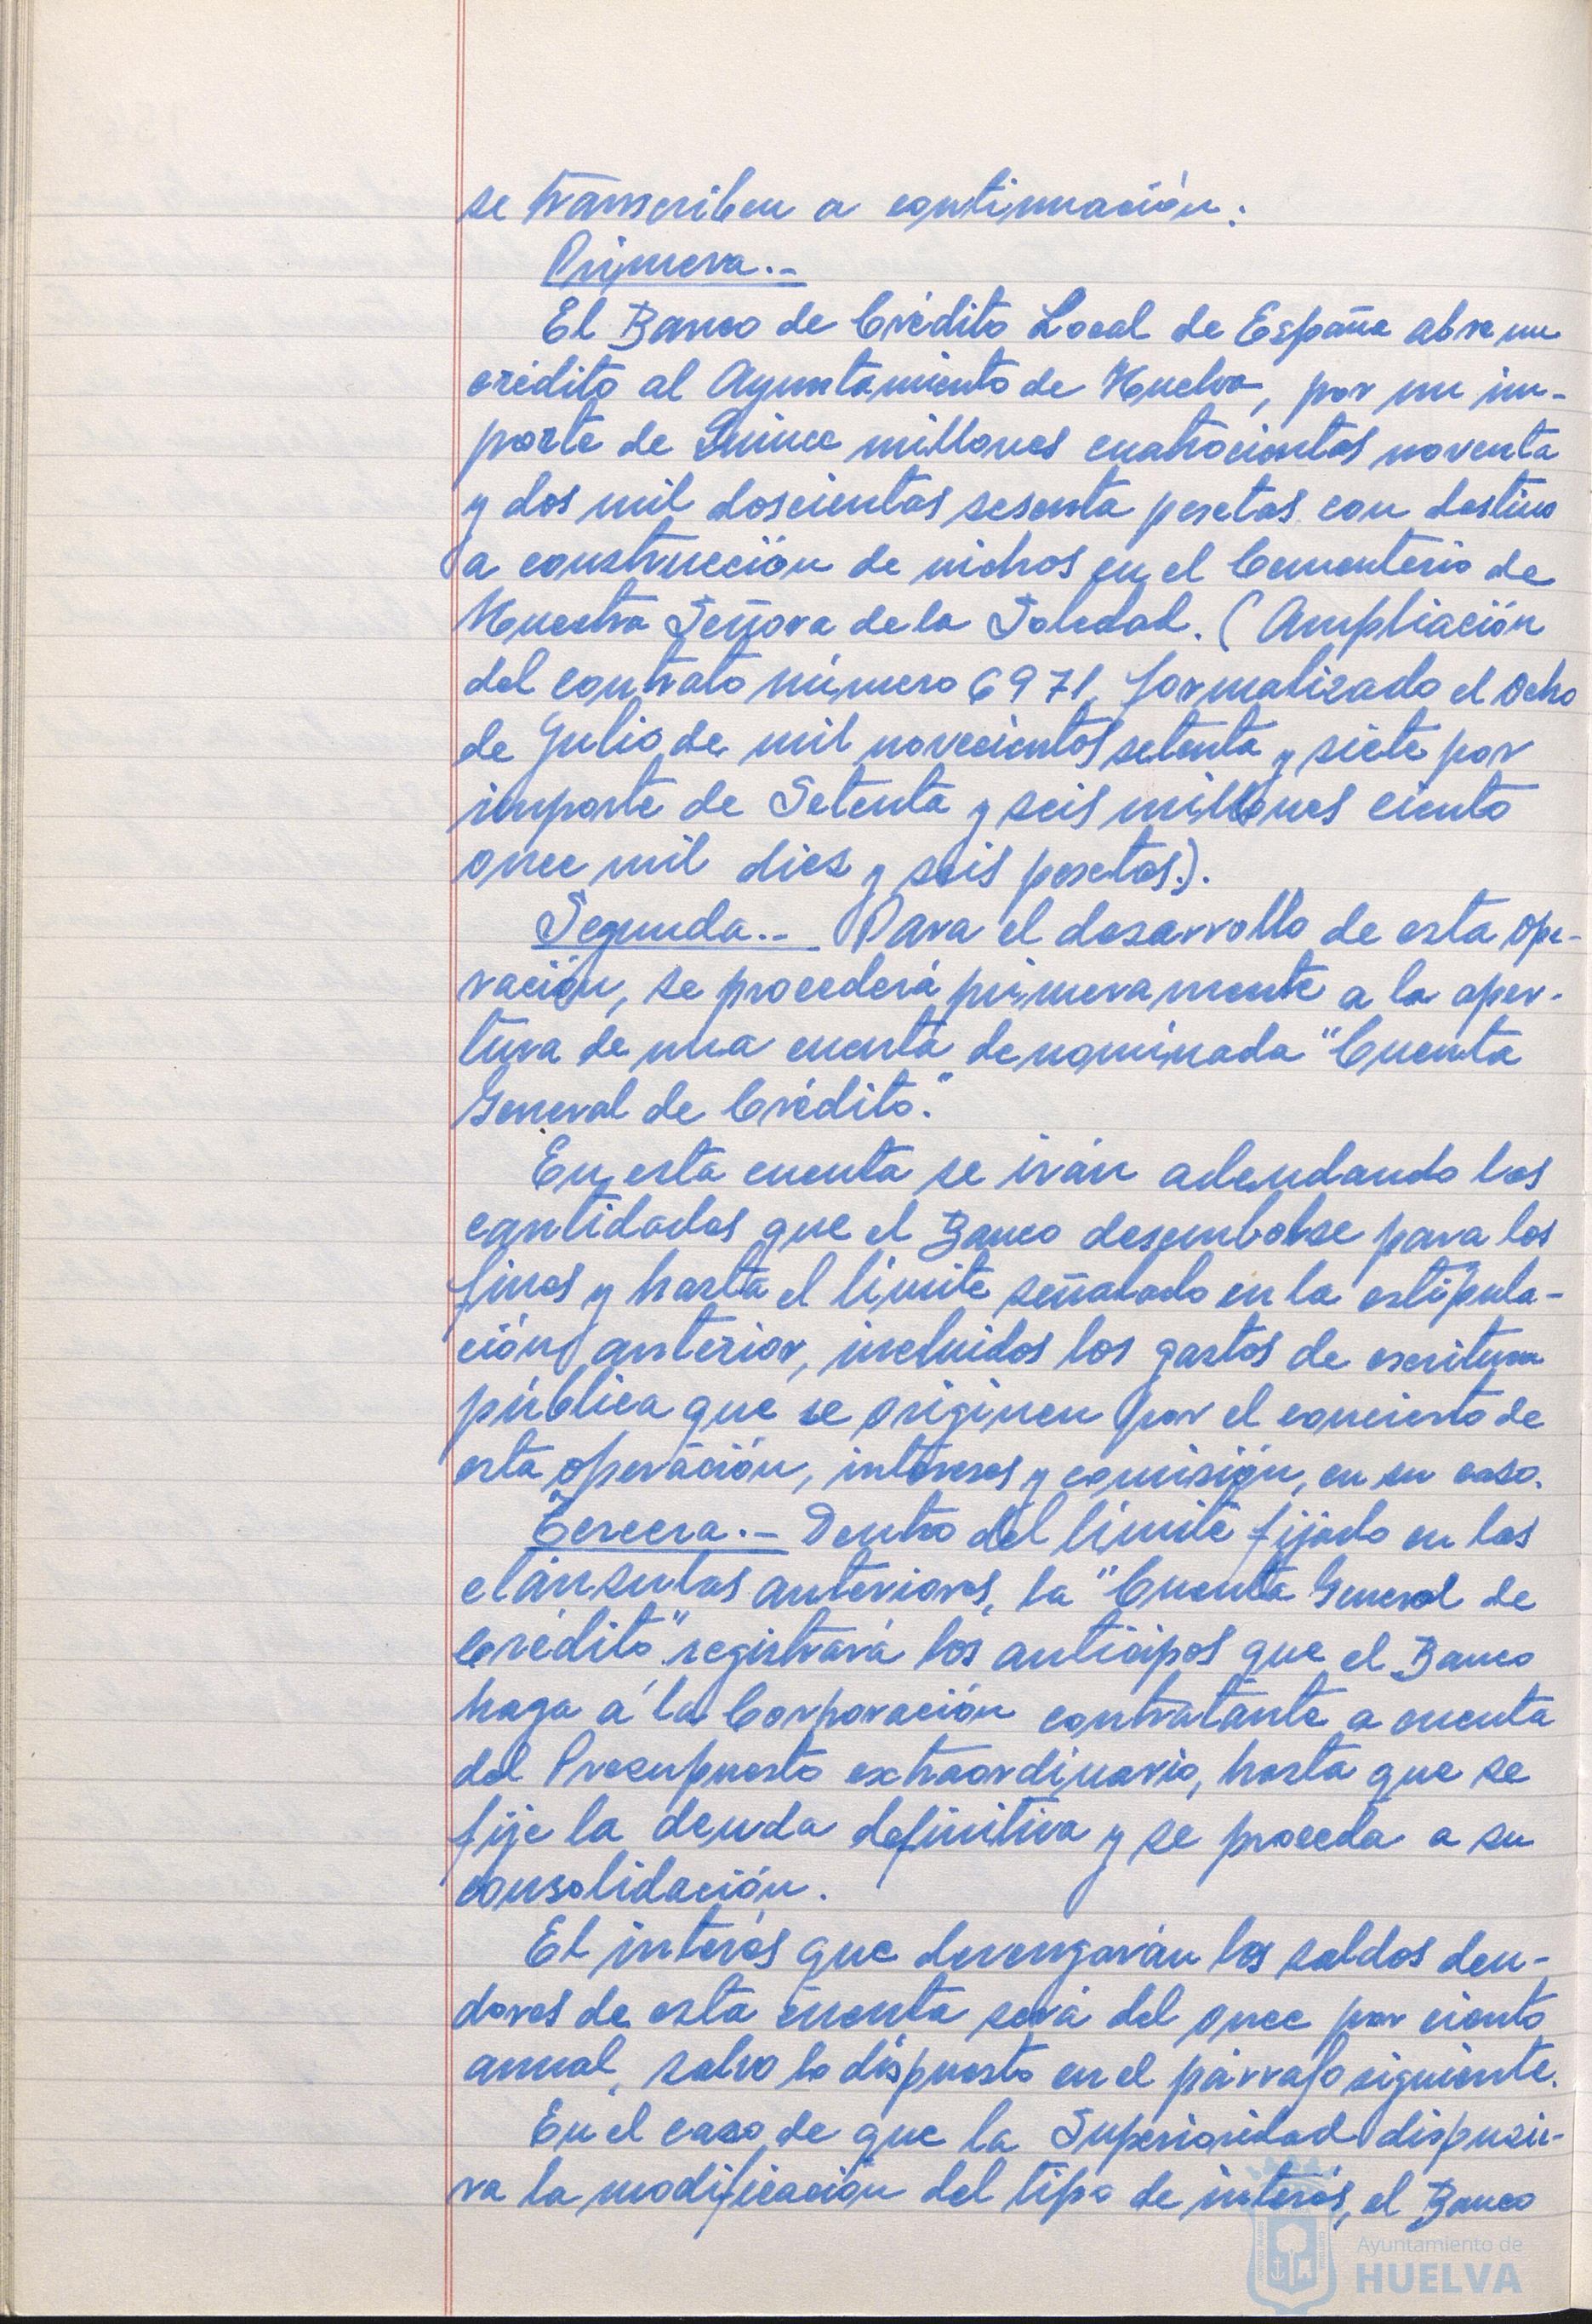 se transcriben a continuación:
Primera.-
El Banco de Crédito Local de España abre un
crédito al Ayuntamiento de Huelva, por un im-
porte de Quince millones cuatrocientas noventa
y dos mil doscientas sesenta pesetas con destino
a construcción de nichos en el Cementerio de
Nuestra Señora de la Soledad. (Ampliación
del contrato número 6971, formalizado el ocho
de Julio de mil novecientos setenta y siete por
importe de Setenta y seis millones ciento
once mil diez y seis pesetas.).
Segunda.- Para el desarrollo de esta ope-
ración, se procederá primeramente a la aper-
tura de una cuenta denominada "Cuenta
General de Crédito."
En esta cuenta se irán adeudando las
cantidades que el Banco desembolse para los
fines y hasta el límite señalado en la estipula-
ción anterior, incluidos los gastos de escritura
pública que se originen por el concierto de
esta operación, intereses y comisión, en su caso.
Tercera.- Dentro del límite fijado en las
cláusulas anteriores, la "Cuenta General de
Crédito" registrará los anticipos que el Banco
haga a la Corporación contratante a cuenta
del Presupuesto extraordinario, hasta que se
fije la deuda definitiva y se proceda a su
consolidación.
El interés que devengarán los saldos deu-
dores de esta cuenta será del once por ciento
anual, salvo lo dispuesto en el párrafo siguiente.
En el caso de que la Superioridad dispusie-
ra la modificación del tipo de interés, el Banco
Ayuntamiento de
HUELVA